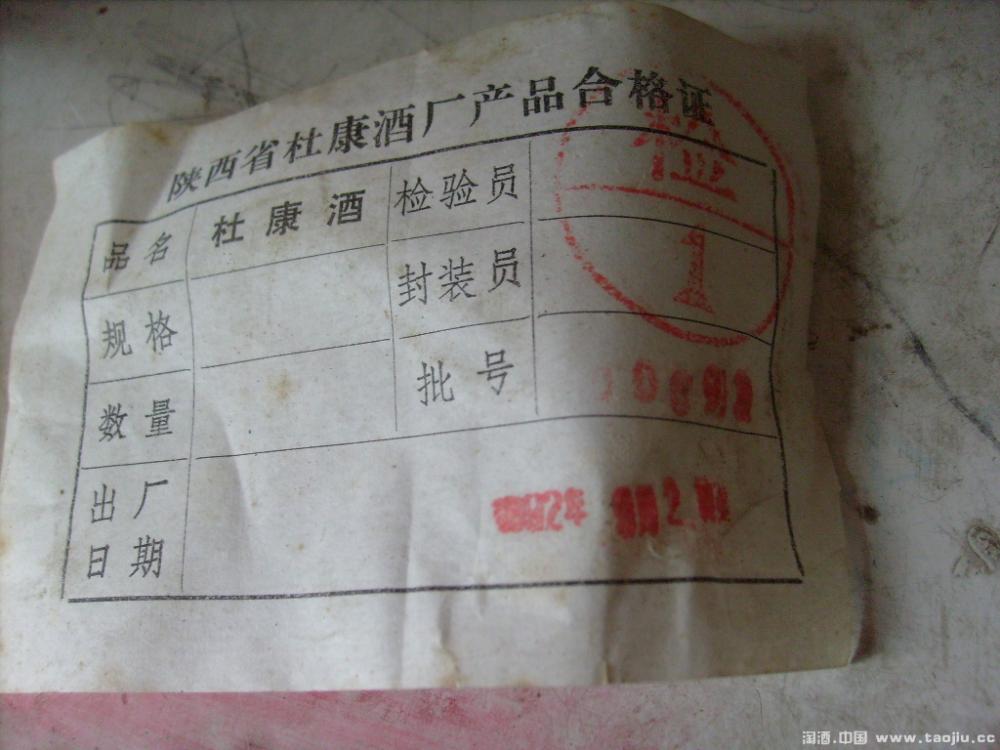 陕西省杜康酒厂产品合格证
品名 杜康酒 检验员 检
规格 封装员 1
数量 批号
出厂日期
淘酒.中国 www.taojiu.cc